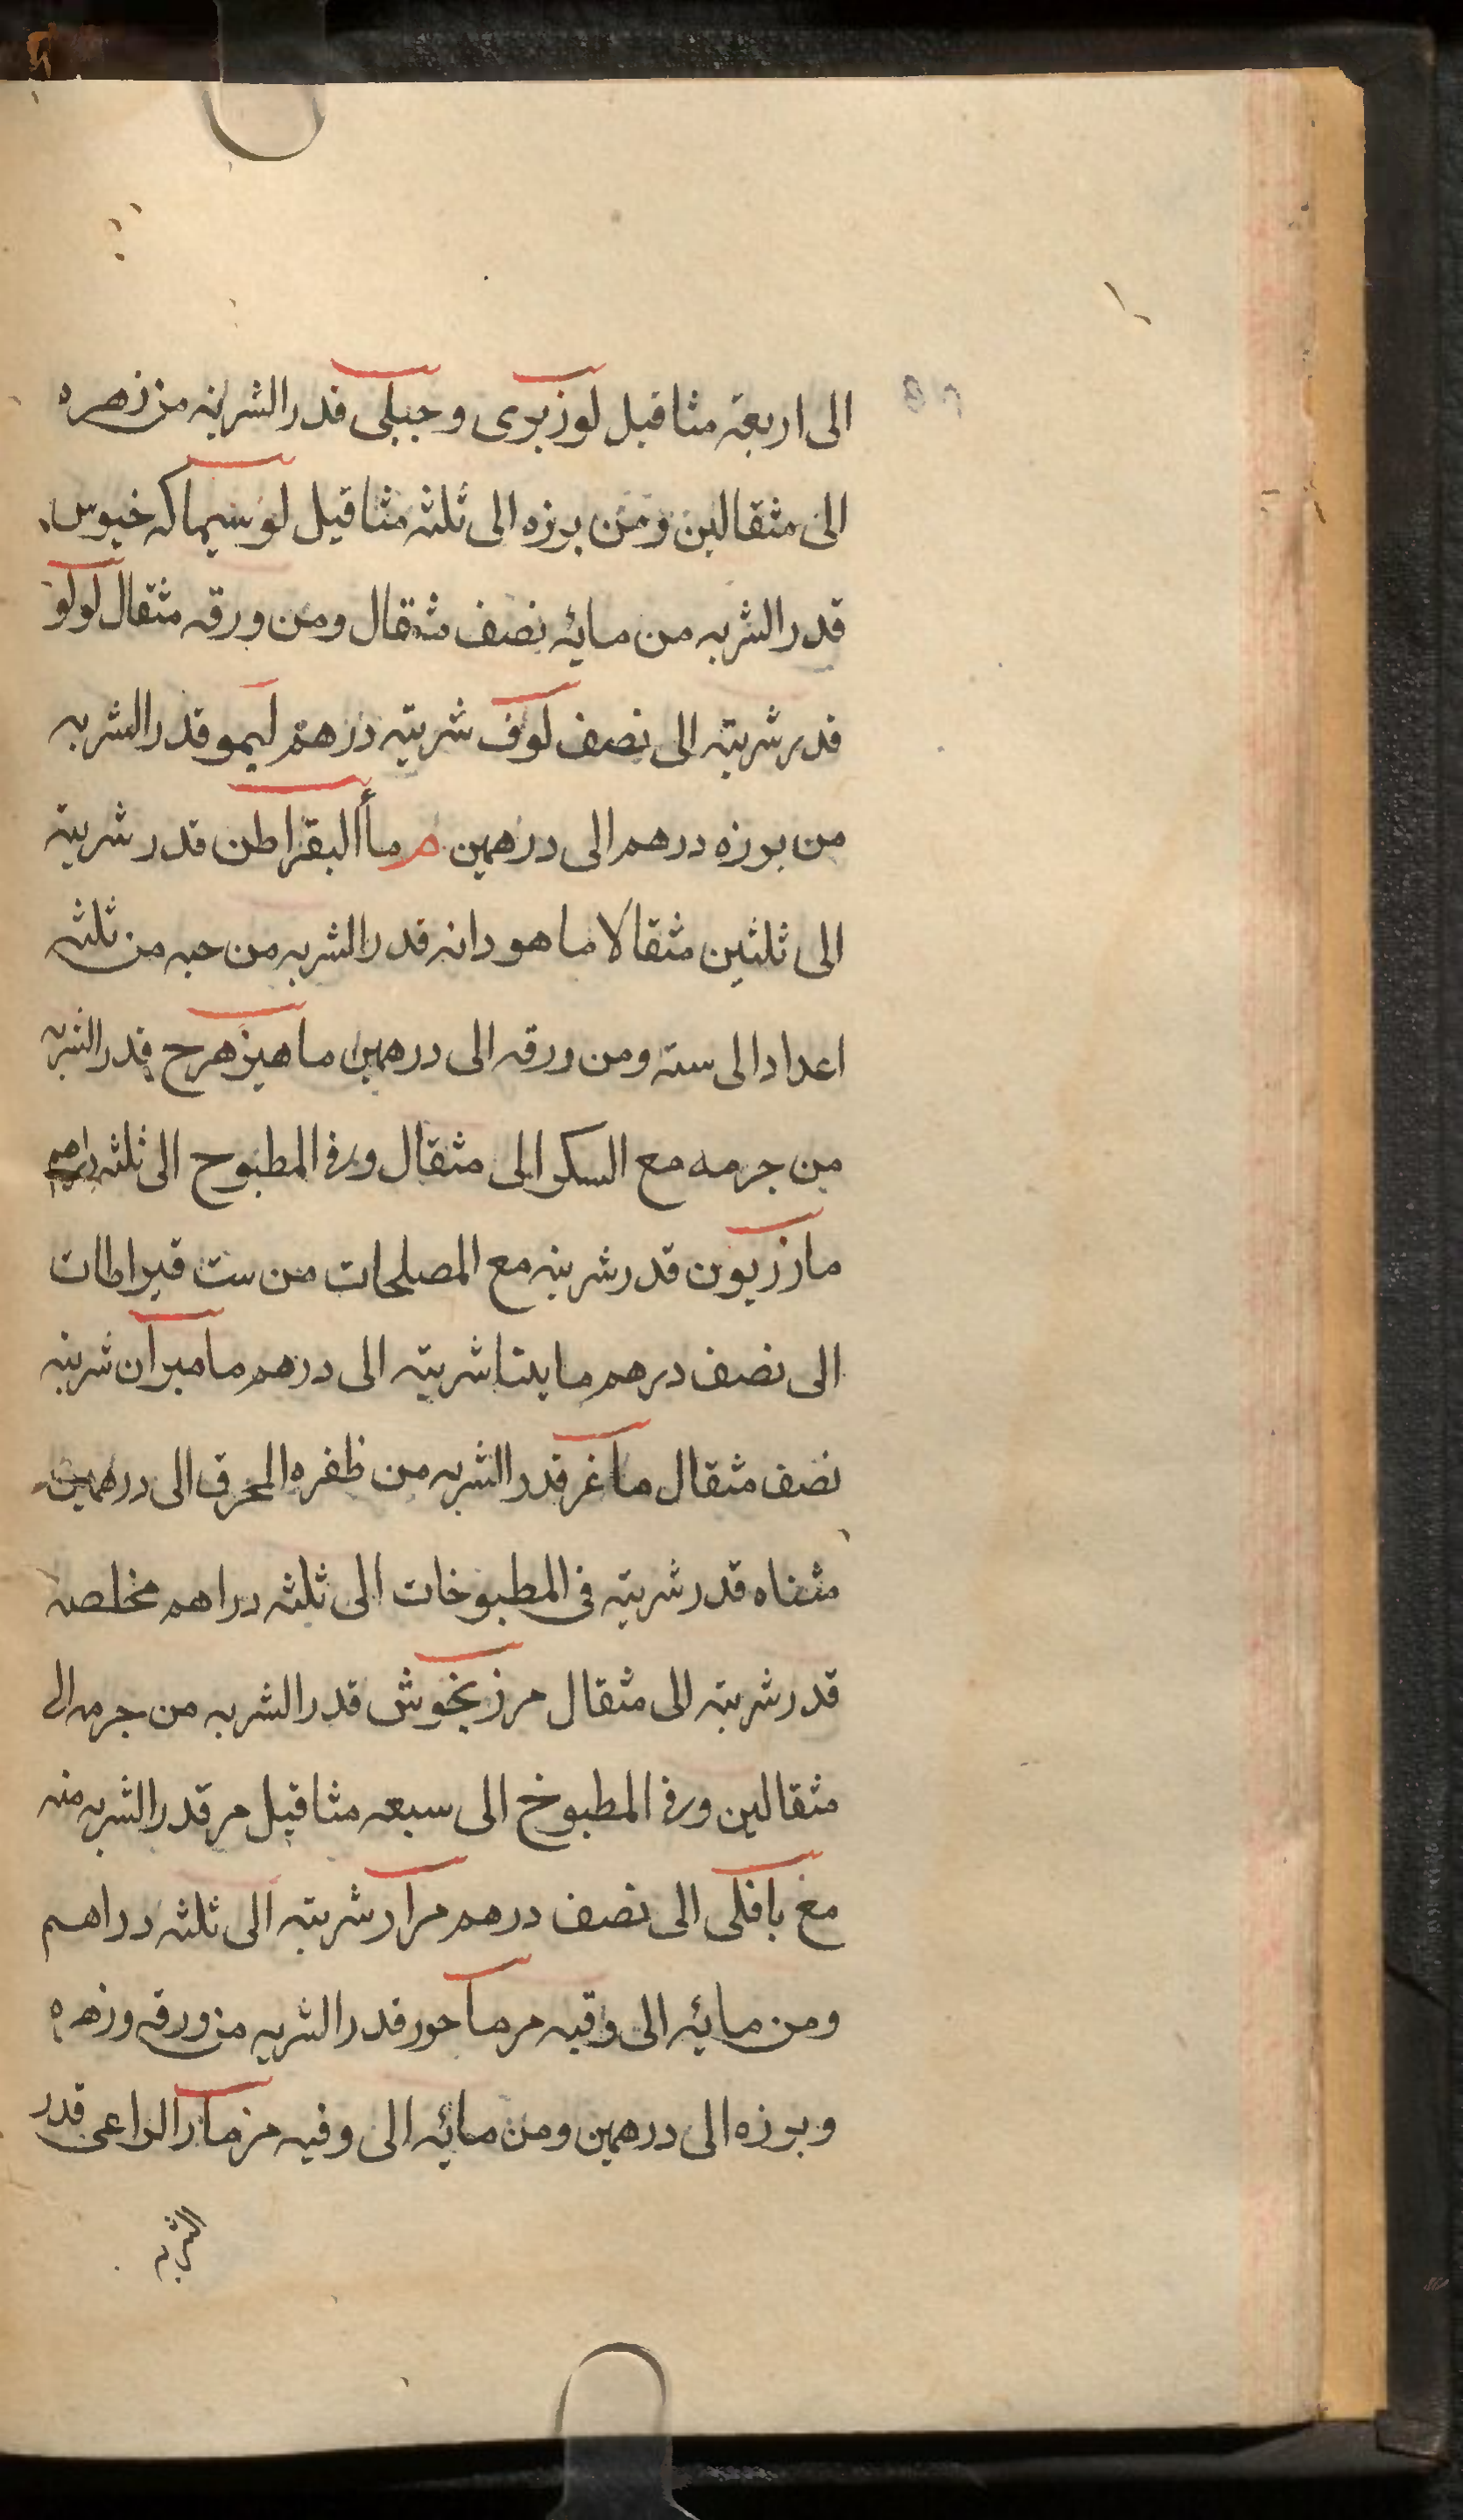 الى اربعة مثاقيل لوز بري وجبلي قدر الشربة من زهره
الى مثقالين ومن بزره الى ثلثه مثاقيل لوسيماكه خيوس
قدر الشربه من مائه نصف مثقال ومن ورقه مثقال لولو
قدر شربته الى نصف لوف شربته درهم ليمو قدر الشربه
من بزره درهم الى درهمين م ماأالبقراطن قدر شربته
الى ثلثين مثقالا ماهودانه قدر الشربه من حبه من ثلثه
اعداد الى سته ومن ورقه الى درهمين ماهيزهرج قدر الشربه
من جرمه مع السكر الى مثقال وفي المطبوخ الى ثلثه دراهم
مازريون قدر شربته مع المصلحات من ست قيراطات
الى نصف درهم مايتا شربته الى درهم ماميران شربته
نصف مثقال ماغر قدر الشربه من ظفره المحرق الى درهمين
مثناه قدر شربته في المطبوخات الى ثلثه دراهم مخلصه
قدر شربته الى مثقال مرزنجوش قدر الشربه من جرمه الى
مثقالين وفي المطبوخ الى سبعه مثاقيل مر قدر الشربه منه
مع باقلى الى نصف درهم مرار شربته الى ثلثه دراهم
ومن مائه الى وقيه مرماحور قدر الشربه من ورقه وزهره
وبزره الى درهمين ومن مائه الى وقيه مزمار الراعي قدر
الشربه